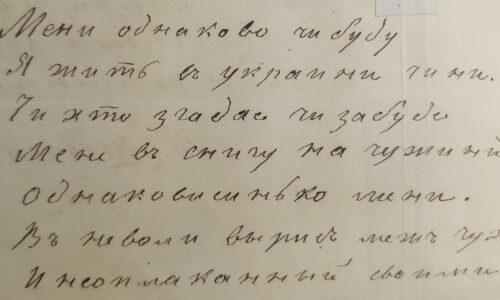 Мени однаково чи буду
Я жить въ украини чи ни.
Чи хто згадае чи забуде
Мене въ снигу на чужини
Однаковисинько мени.
Въ неволи вырисъ межъ чуж
И неоплаканный своими